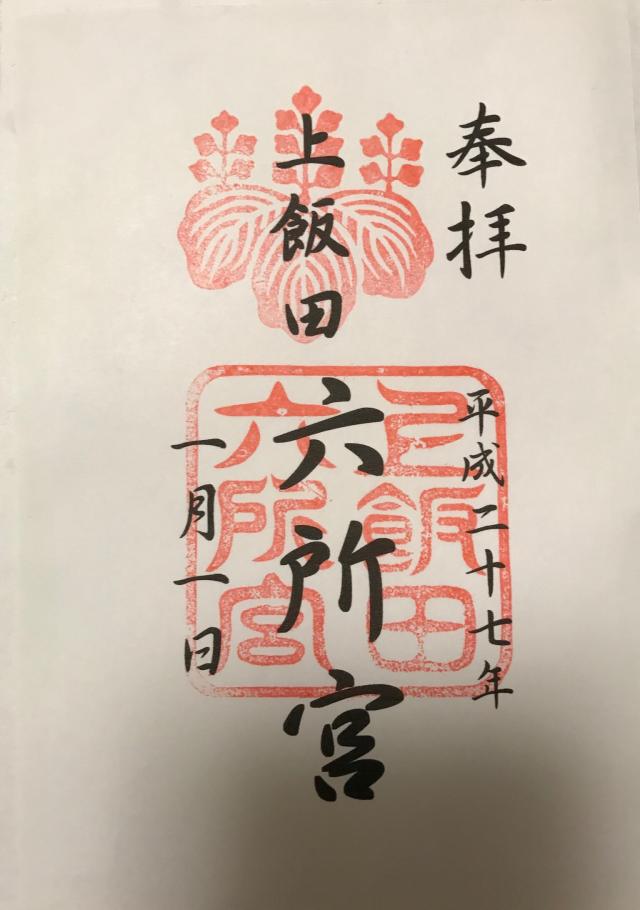 奉拝
平成二十七年
上飯田
六所宮
一月一日
上飯田
六所宮